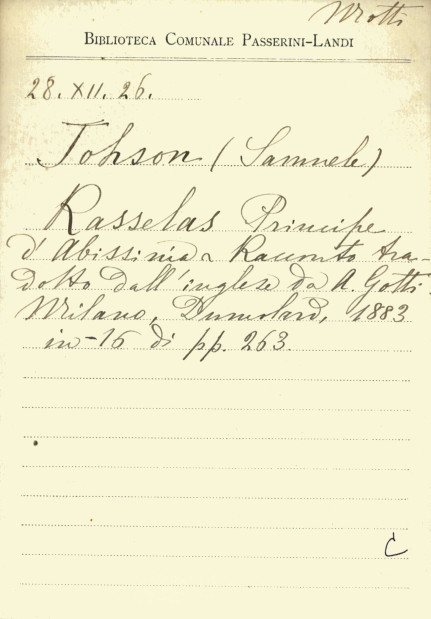 Motti
BIBLIOTECA COMUNALE PASSERINI-LANDI
28. XII. 26.
Johson (Samuele)
Rasselas Principe
d'Abissinia Racconto tra-
dotto dall'inglese da A. Gotti.
Milano, Dumolard, 1883
in-16 di pp. 263.
C